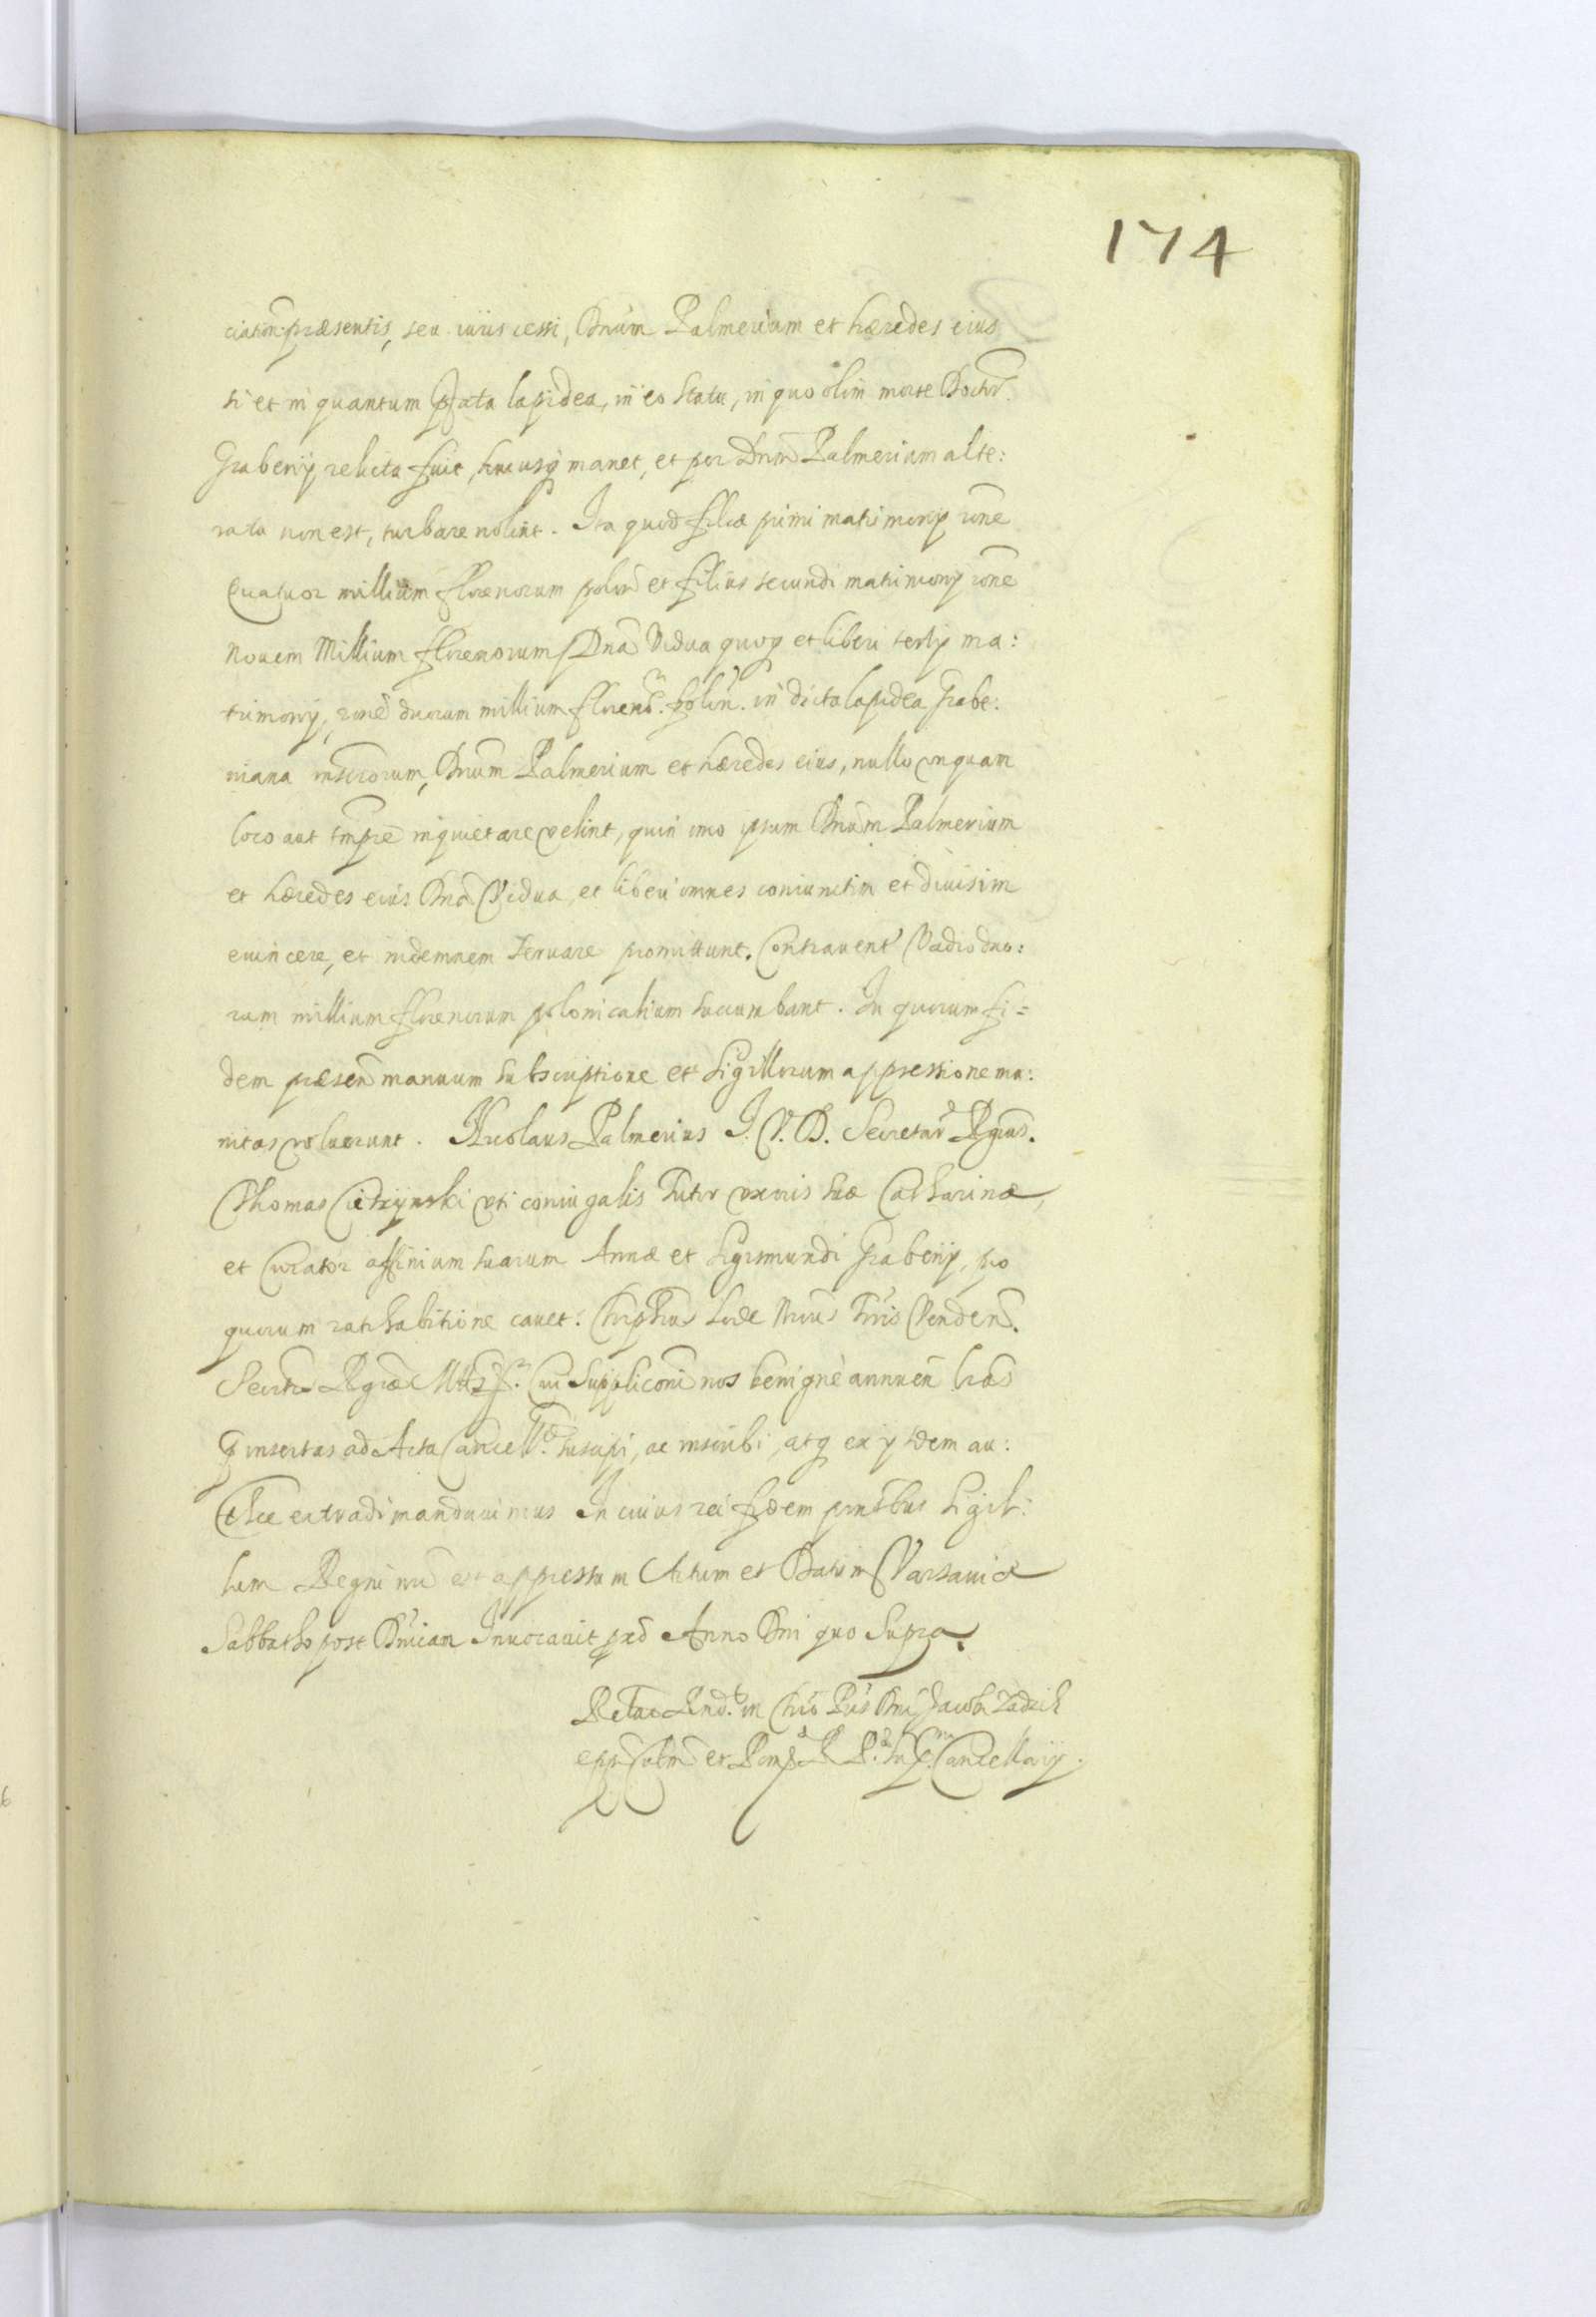 174
ciation: præsentis, seu iuris cessi, Dnum Palmerium et hæredes eius
si et in quantum pfata lapidea, in eo statu, in quo olim morte Doctor.
Grabenij relicta fuit, hucusq manet, et per Dnum Palmerium alte:
rata non est, turbare nolint. Ita quod filiæ primi matrimonij rone
Quatuor millium florenorum polon et filius secundi matrimonij rone
Nouem Millium florenorum Dna Vidua quoq et liberi tertij ma:
trimonij, rone duorum millium floreno. polon. in dicta lapidea Grabe:
niana inscriorum, Dnum Palmerium et hæredes eius, nullo unquam
loco aut tmpre inquietare velint, quin imo ipsum Dnum Palmerium
et hæredes eius Dna Vidua, et liberi omnes coniunctim et diuisim
euincere, et indemnem seruare promittunt. Contrauent Vadio duo:
rum millium florenorum polonicalium succumbant. In quorum fi=
dem præsen manuum subscriptione et sigillorum appressione mu:
nitas voluerunt. Nicolaus Palmerius J. V. D. Secretar Rgius.
Thomas uti coniugalis Tutor uxoris suæ Catharinæ,
et Curator affinium suarum Annæ et Sigismundi Grabenij, pro
quorum ratihabitione cauet. Nrius Trris Venden.
Secrtr Rgiæ Mttis. Cui Suppliconi nos benignè annuen lras
pinsertas ad Acta Cancell. suscipi, ac inscribi, atq ex ijsdem au:
thce extradi mandauimus In cuius rei fidem pntibus Sigil:
lum Regni nri est appressum Actum et Datum Varsauiæ
Sabbatho post Dnicam Inuocauit pxd Anno Dni quo Supra.
Relao Rnd. in Chro Pris Dni Jacobi Zadzik
eppi Culmen et Pomes R P. Sup. Cancellarij.